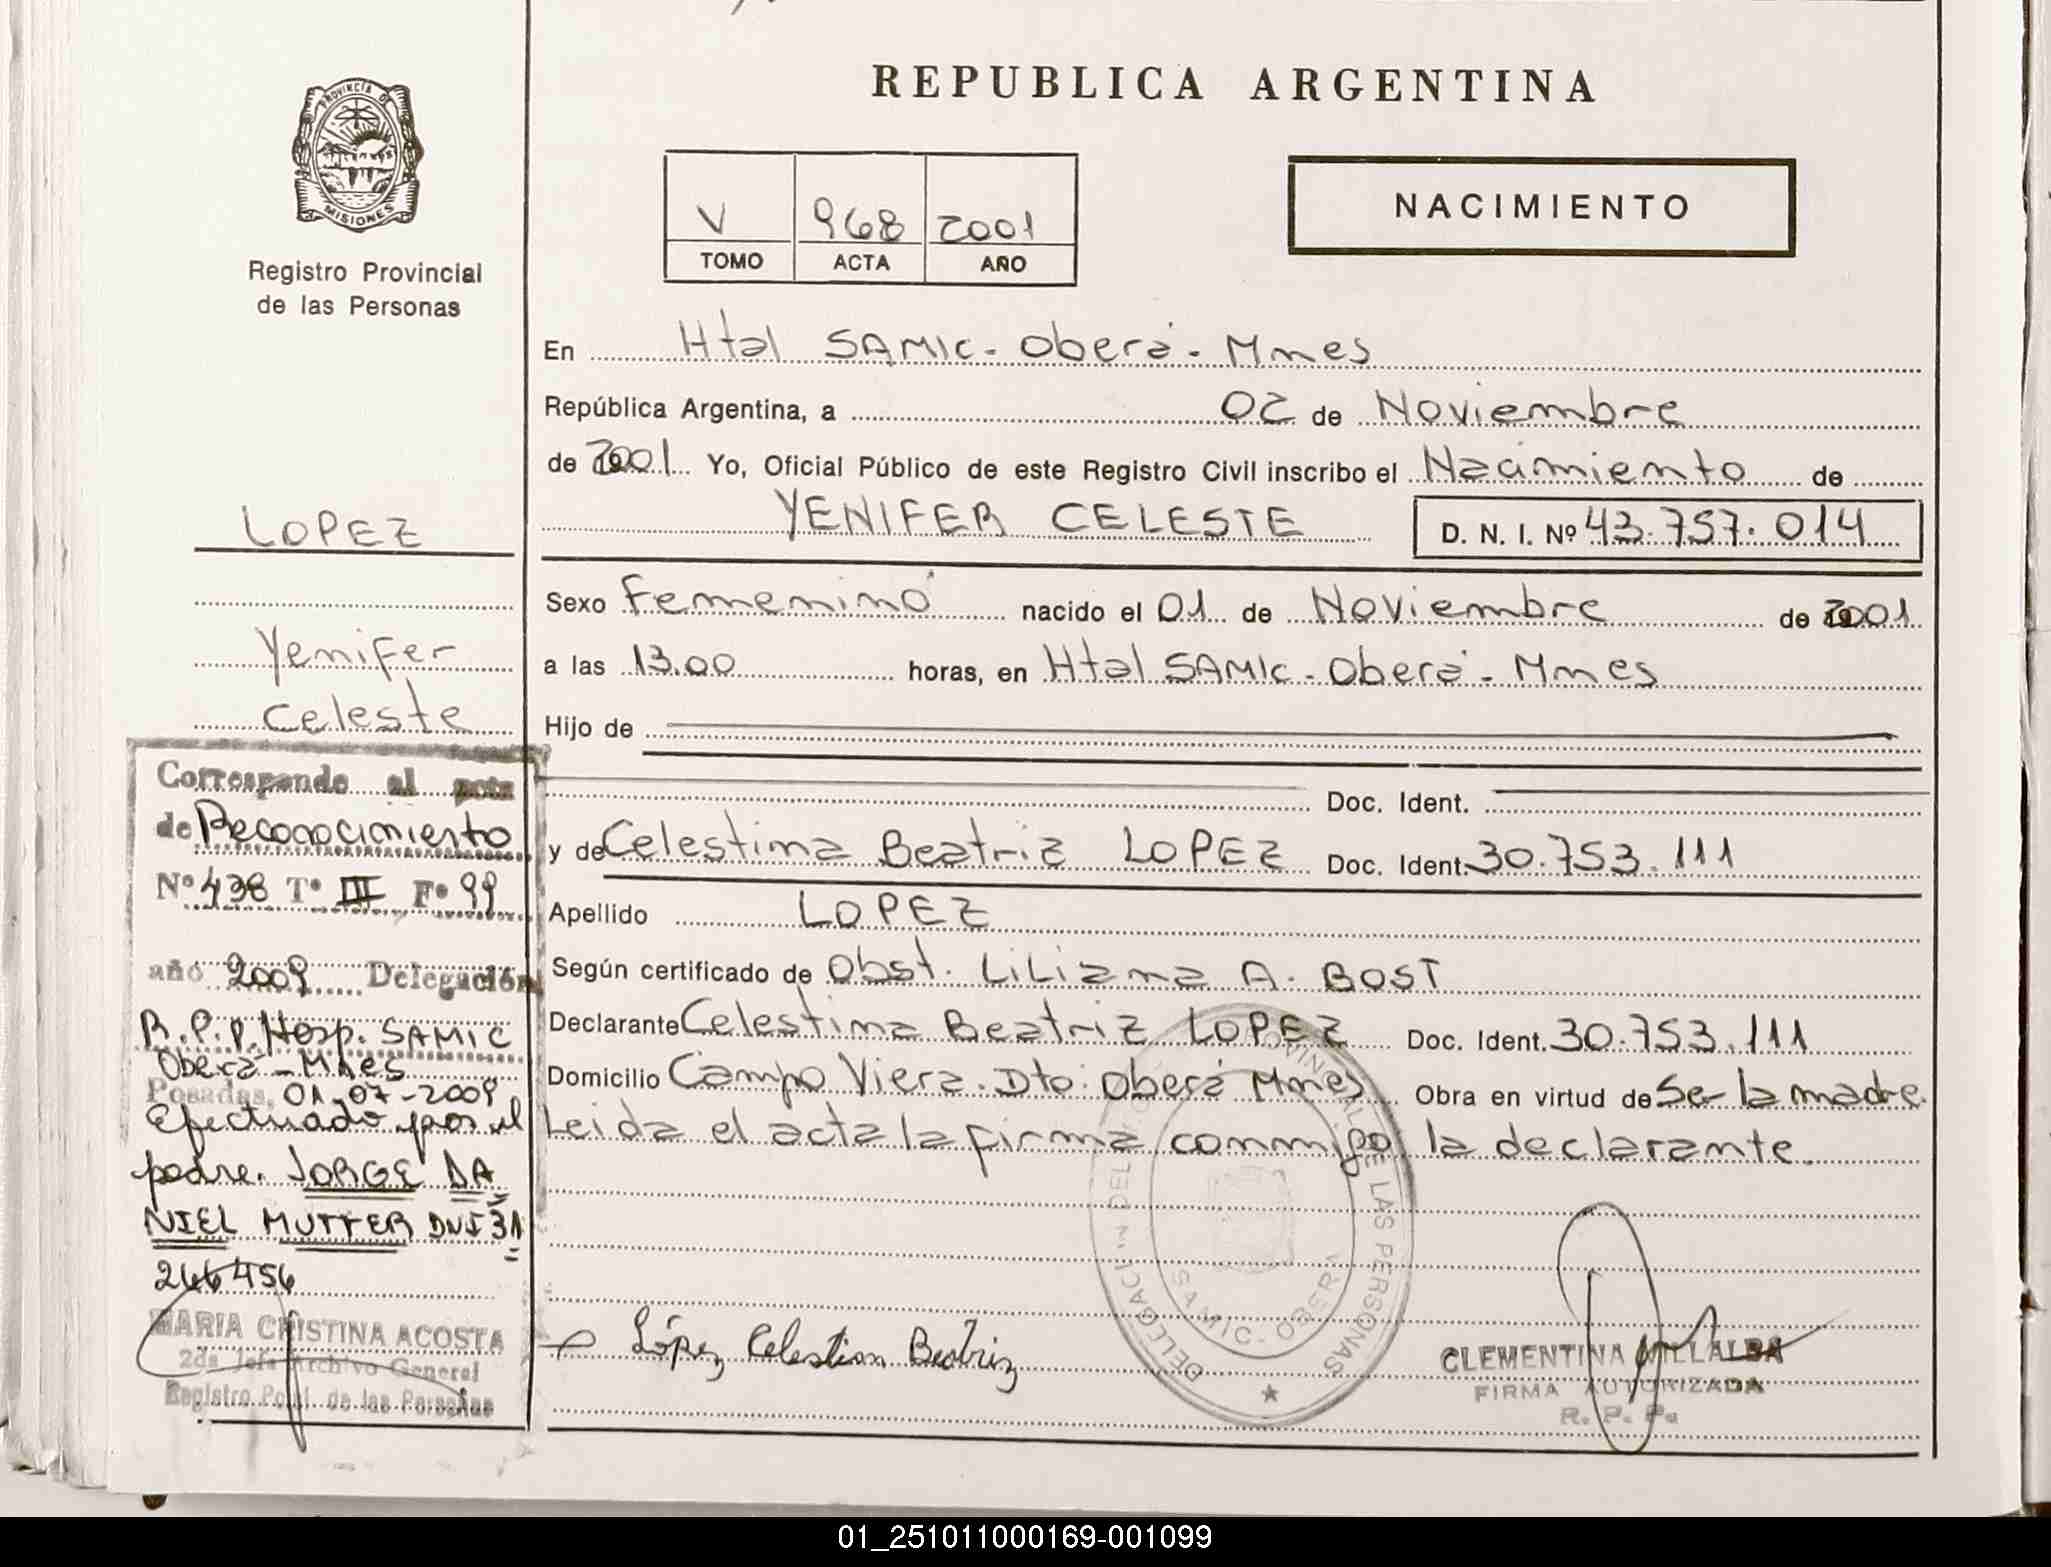 REPUBLICA ARGENTINA
PROVINCIA DE
MISIONES
Registro Provincial
de las Personas
V 968 2001
TOMO ACTA AÑO
NACIMIENTO
En Htal SAMIC - Oberá - Mnes
República Argentina, a 02 de Noviembre
de 2001 Yo, Oficial Público de este Registro Civil inscribo el Nacimiento de
YENIFER CELESTE D. N. I. Nº 43.757.014
Sexo Femenino nacido el 01 de Noviembre de 2001
a las 13.00 horas, en Htal SAMIC - Oberá - Mnes
Hijo de
Doc. Ident.
y de Celestina Beatriz LOPEZ Doc. Ident. 30.753.111
Apellido LOPEZ
Según certificado de Obst. LiLiana A. BOST
Declarante Celestina Beatriz LOPEZ Doc. Ident. 30.753.111
Domicilio Campo Viera. Dto. Oberá Mnes Obra en virtud de Ser la madre.
Leida el acta la firma conmigo la declarante.
López Celestina Beatriz
DELEGACION DEL REGISTRO PROVINCIAL DE LAS PERSONAS
SAMIC - OBERA
CLEMENTINA VILLALBA
FIRMA AUTORIZADA
R. P. P.
LOPEZ
Yenifer
Celeste
Corresponde al acta
de Reconocimiento
Nº 438 Tº III Fº 99
año 2009 Delegación
R.P.P. Hosp. SAMIC
Oberá - Mnes
Posadas, 01-07-2009
Efectuado por el
padre. JORGE DA
NIEL MUTTER DNI 31
266456
MARIA CRISTINA ACOSTA
2da Jefa Archivo General
Registro Pcial. de las Personas
01_251011000169-001099